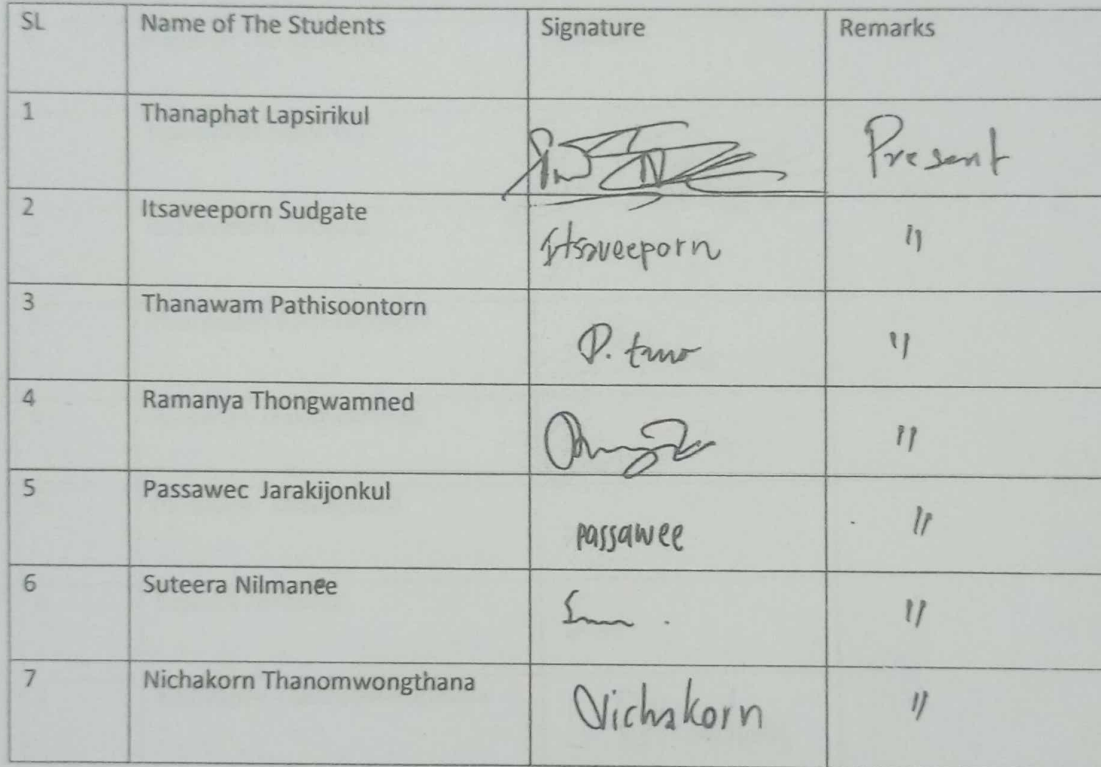 SL Name of The Students Signature Remarks
1 Thanaphat Lapsirikul Present
2 Itsaveeporn Sudgate Itsaveeporn "
3 Thanawam Pathisoontorn P. "
4 Ramanya Thongwamned "
5 Passawec Jarakijonkul passawee "
6 Suteera Nilmanee "
7 Nichakorn Thanomwongthana Nichakorn "